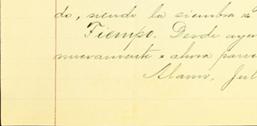 do, siendo la siembra
Tiempo. Desde ayer
nuevamente ahora parece
Alamo, Jul